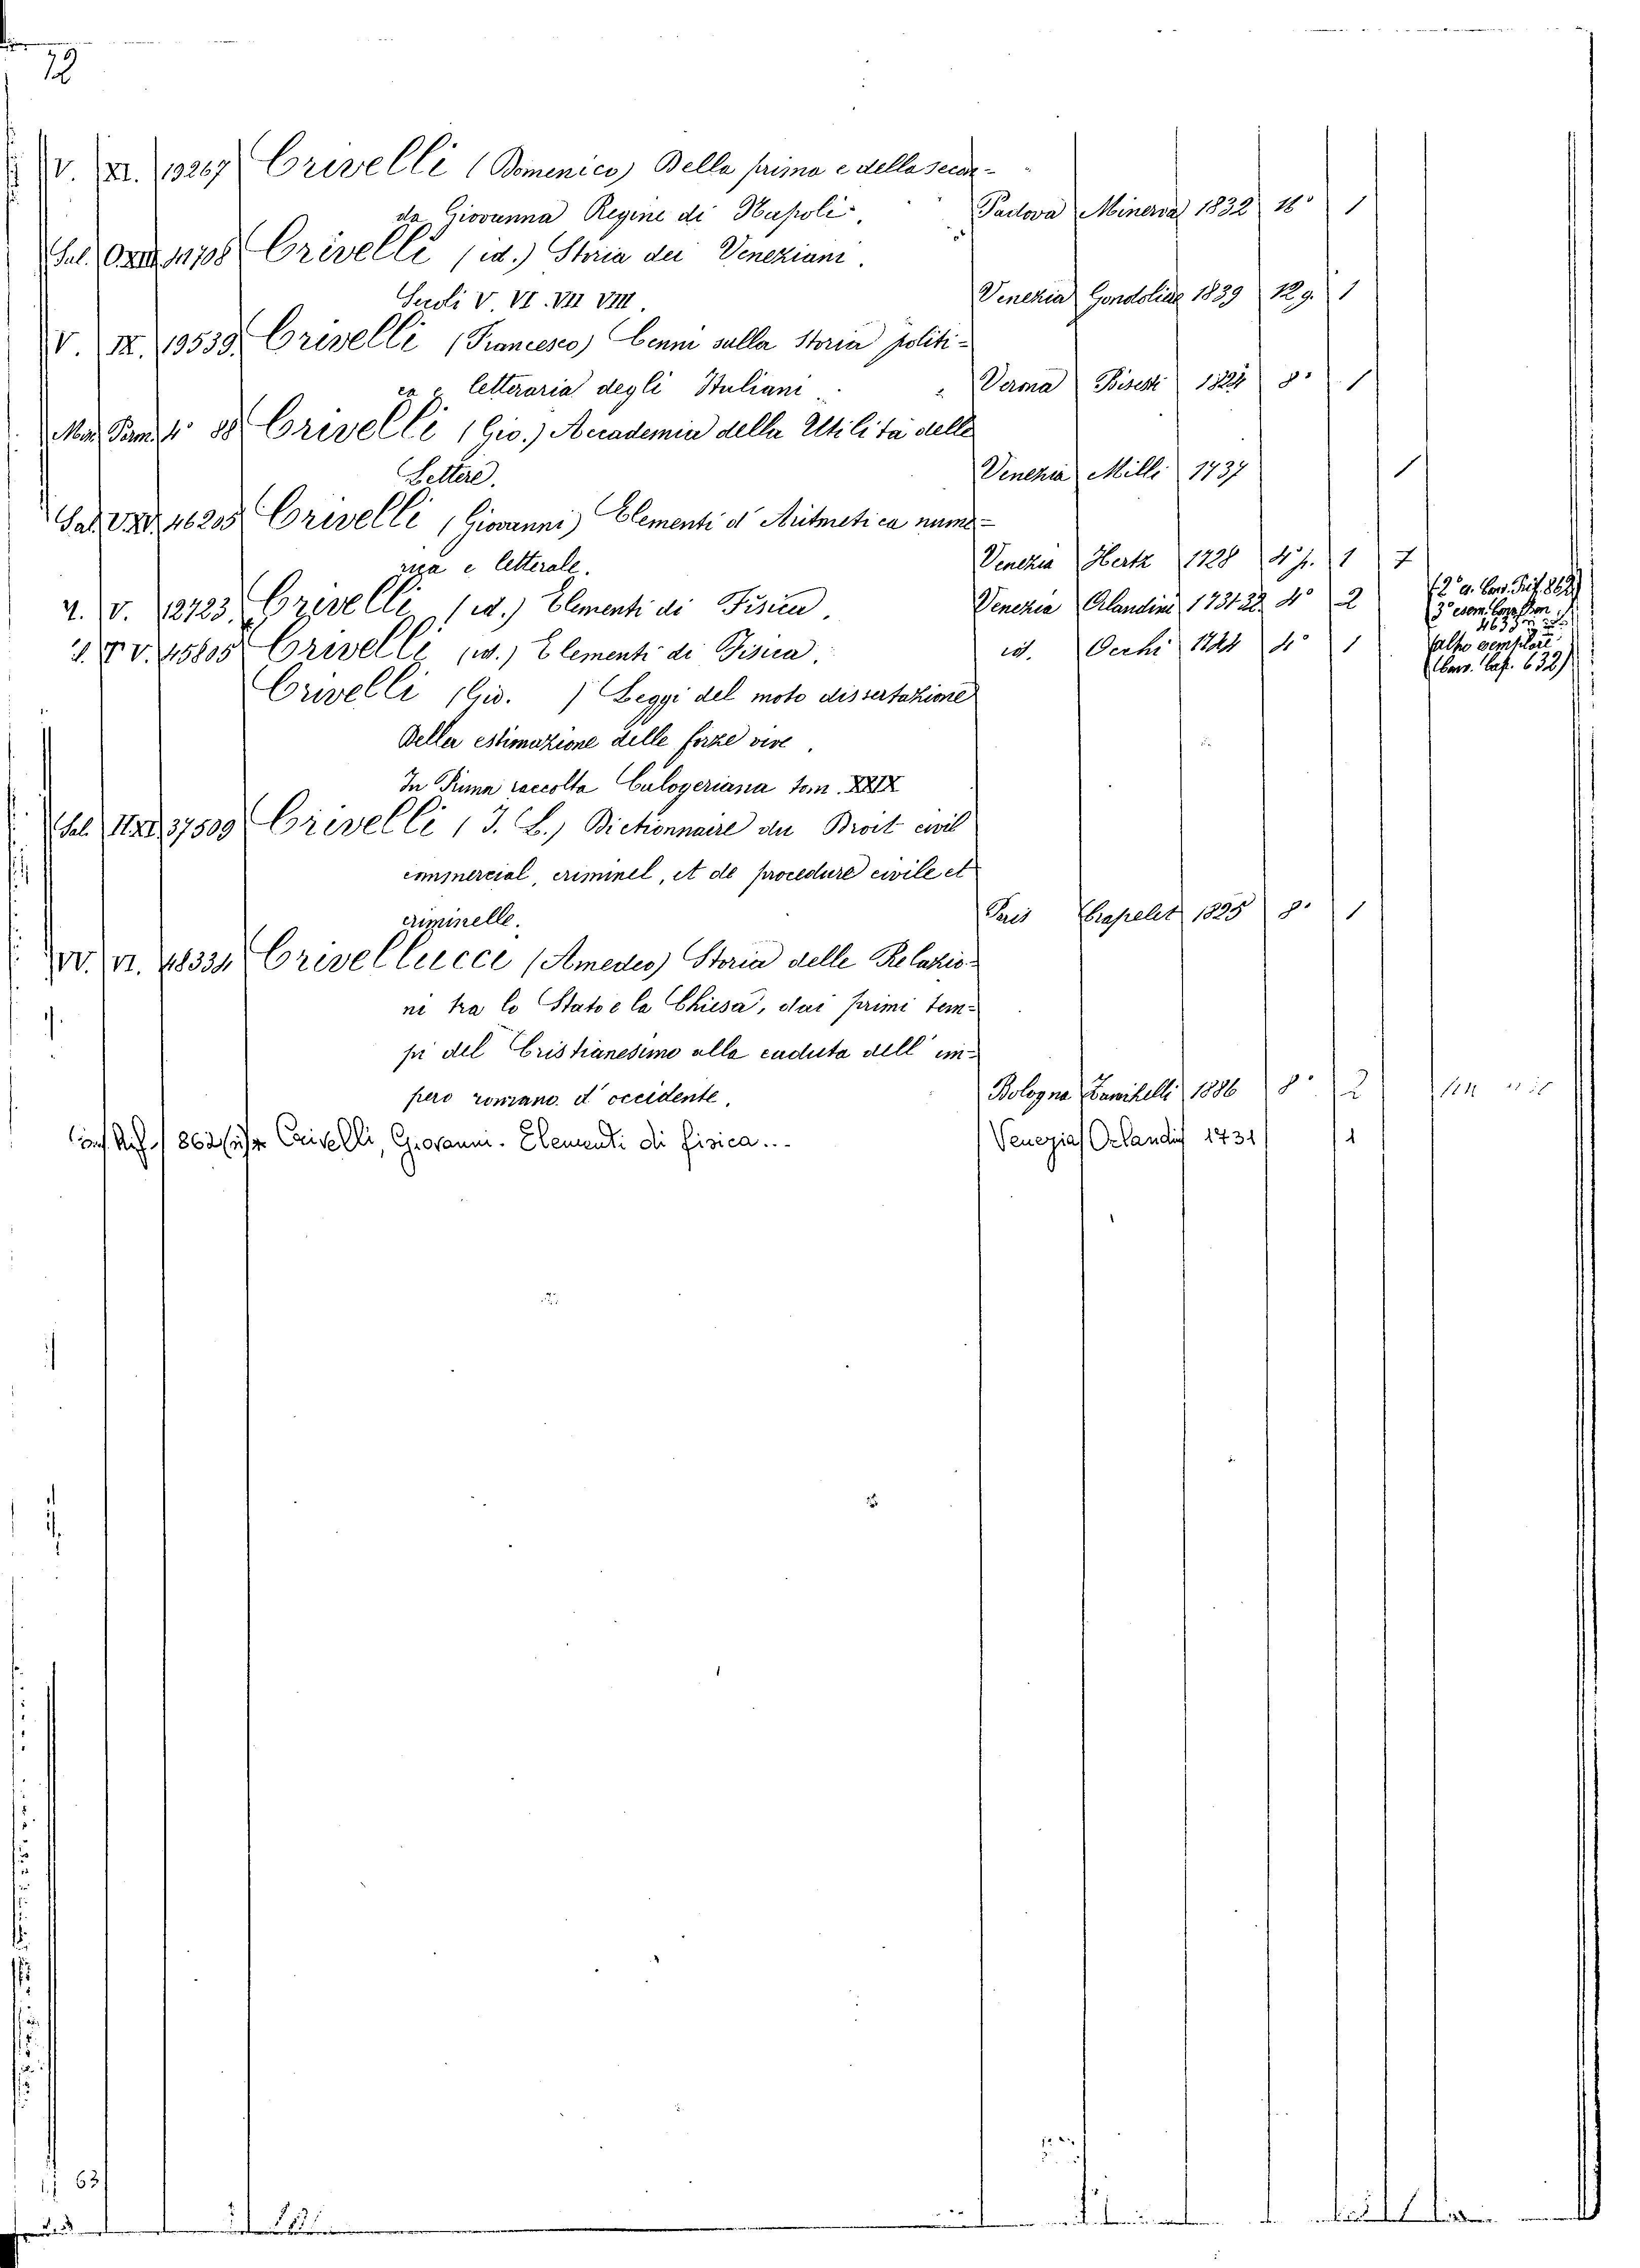 72
V. XI. 19267 Crivelli (Domenico) Della prima e della secon-
da Giovanna Regine di Napoli. Padova Minerva 1832 16° 1
Sal. O.XIII. 11708 Crivelli (id.) Storia dei Veneziani.
Secoli V. VI. VII VIII. Venezia Gondoliere 1839 12 g. 1
V. IX. 19539. Crivelli (Francesco) Cenni sulla Storia politi-
ca e letteraria degli Italiani Verona Bisesti 1824 8° 1
4° 88 Crivelli (Gio.) Accademia della Utilità delle
Lettere. Venezia Milli 1737 1
Sal. 46205 Crivelli (Giovanni) Elementi d'Aritmetica nume-
rica e letterale. Venezia Hertz 1728 4° p. 1 7
V. 12723. Crivelli (id.) Elementi di Fisica Venezia Orlandini 1731 32 4° 2
V. 45805 Crivelli (id.) Elementi di Fisica. id. Occhi 1744 4° 1
altro esemplare
Crivelli (Gio. ) Leggi del moto dissertazione
Della estimazione delle forze vive.
In Prima raccolta Calogeriana tom. XXIX
Sal. 37509 Crivelli (J. L.) Dictionnaire du Droit civil
commercial, criminel, et de procedure civile et
criminelle. Paris Crapelet 1825 8° 1
VI. 48334 Crivellucci (Amedeo) Storia delle Relazio-
ni tra lo Stato e la Chiesa, dai primi tem-
pi del Cristianesimo alla caduta dell'im-
pero romano d'occidente. Bologna Zanichelli 1886 8° 2
862 Crivelli, Giovanni. Elementi di fisica... Venezia Orlandini 1731 1
63